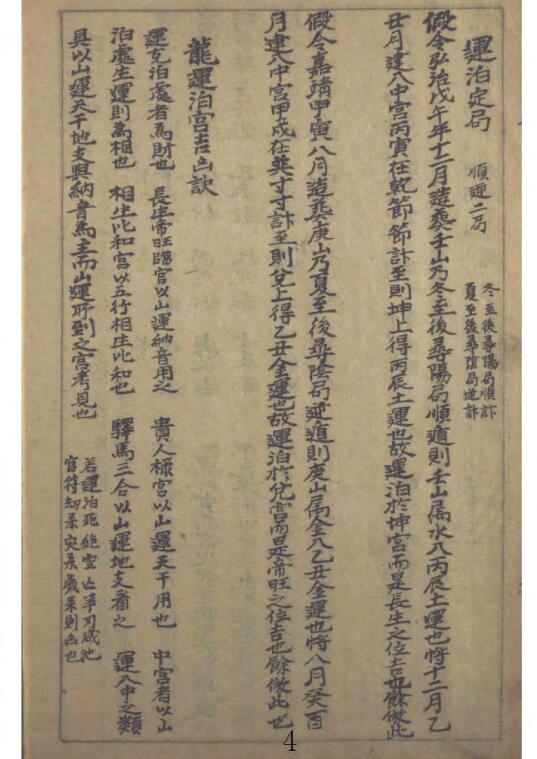 運泊定局 順逆二局 冬至後尋陽局順計
夏至後尋陰局逆計
假令弘治戊午年十二月造塟壬山乃冬至後尋陽局順遁則壬山屬水入丙辰土運也將十二月乙
丑月建入中宮丙寅在乾節節計至則坤上得丙辰土運也故運泊於坤宮而是長生之位吉也餘倣此
假令嘉靖甲寅八月造塟庚山乃夏至後尋陰局逆遁則庚山屬金入乙丑金運也將八月癸酉
月建入中宮甲戌在巽寸寸計至則兌上得乙丑金運也故運泊於兌宮而是帝旺之位吉也餘倣此也
龍運泊宮吉凶訣
運克泊處者為財也 長生帝旺臨官以山運納音用之 貴人祿宮以山運天干用也 中宮者以山
泊處生運則為相也 相生比和宮以五行相生比和也 驛馬三合以山運地支看之 運入中之類
具以山運天干地支與納音為主而山運所到之宮考見也 若運泊死絕空亡羊刃咸池
官符劫杀灾杀歲杀則凶也
4